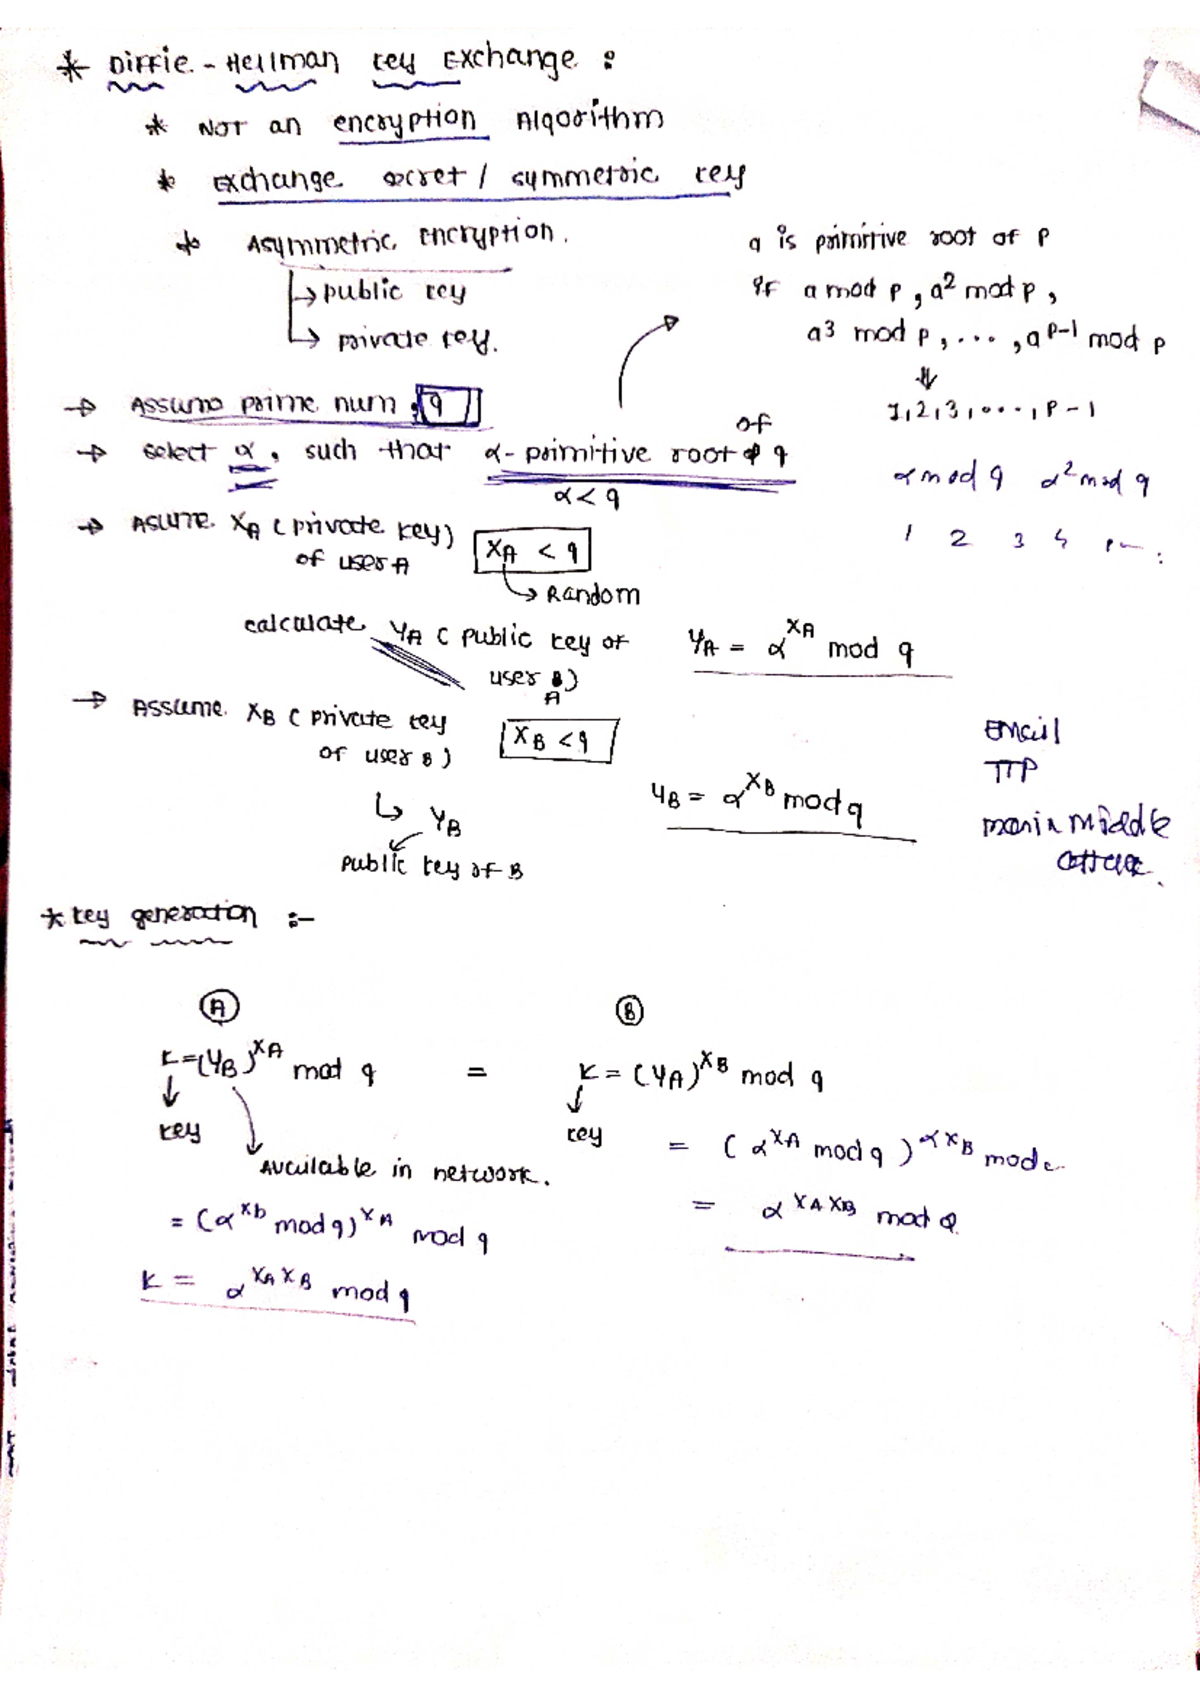 * Diffie - Hellman key Exchange :
* NOT an encryption Algorithm
* Exchange secret / symmetric key
* Asymmetric Encryption.
→ public key
→ private key.
a is primitive root of p
if a mod p, a² mod p,
a³ mod p, ..., a^p-1 mod p
⇓
1, 2, 3, ..., p-1
→ Assume prime num, q
→ select α, such that α - primitive root of q
α < q
α mod q α² mod q
1 2 3 4
→ Assume XA (private key)
of user A
XA < q
→ Random
calculate YA (public key of
user A)
YA = α^XA mod q
→ Assume XB (private key
of user B)
XB < q
↳ YB
public key of B
YB = α^XB mod q
Email
TTP
man in middle
attack.
* key generation :-
A B
K = (YB)^XA mod q = K = (YA)^XB mod q
↓ key ↓ key
Available in network.
= (α^Xb mod q)^XA mod q
K = α^XA XB mod q
= (α^XA mod q)^αXB mod
= α^XA XB mod q